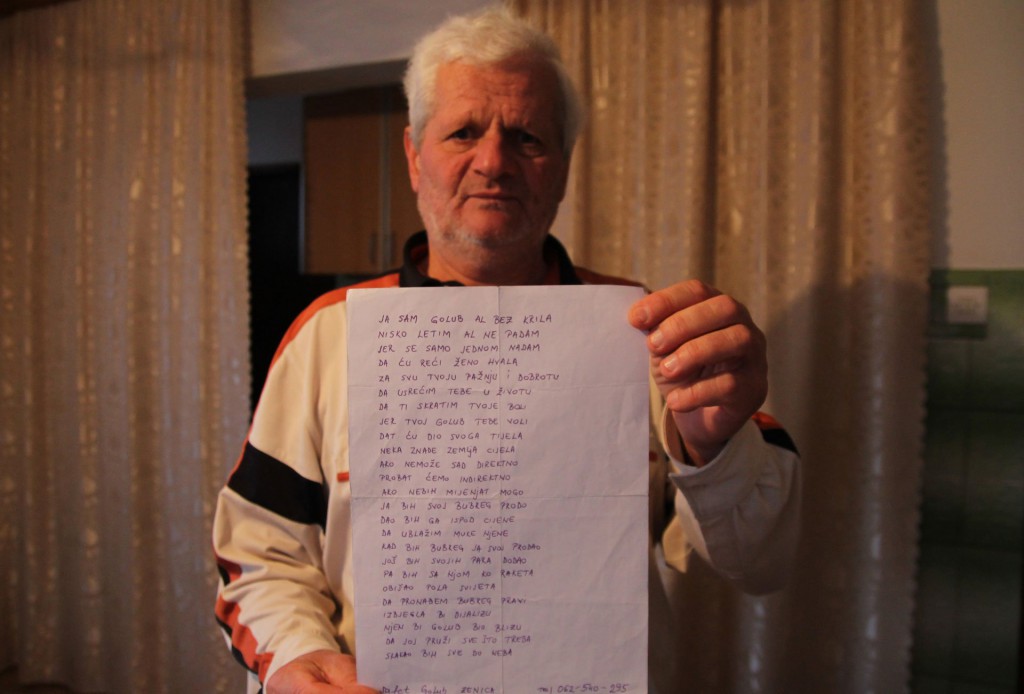 JA SAM GOLUB AL BEZ KRILA
NISKO LETIM AL NE PADAM
JER SE SAMO JEDNOM NADAM
DA ĆU REĆI ŽENO HVALA
ZA SVU TVOJU PAŽNJU I DOBROTU
DA USREĆIM TEBE U ŽIVOTU
DA TI SKRATIM TVOJE BOLI
JER TVOJ GOLUB TEBE VOLI
DAT ĆU DIO SVOGA TIJELA
NEKA ZNADE ZEMLJA CIJELA
AKO NEMOŽE SAD DIREKTNO
PROBAT ĆEMO INDIREKTNO
AKO NEBIH MIJENJAT MOGO
JA BIH SVOJ BUBREG PRODO
DAO BIH GA ISPOD CIJENE
DA UBLAŽIM MUKE NJENE
KAD BIH BUBREG JA SVOJ PRODAO
JOŠ BIH SVOJIH PARA DODAO
PA BIH SA NJOM KO RAKETA
OBIŠAO POLA SVIJETA
DA PRONAĐEM BUBREG PRAVI
IZBJEGLA BI DIJALIZU
NJEM BI GOLUB BIO BLIZU
DA JOJ PRUŽI SVE ŠTO TREBA
SLAGAO BIH SVE DO NEBA
GOLUB ZENICA TEL 062-540-295